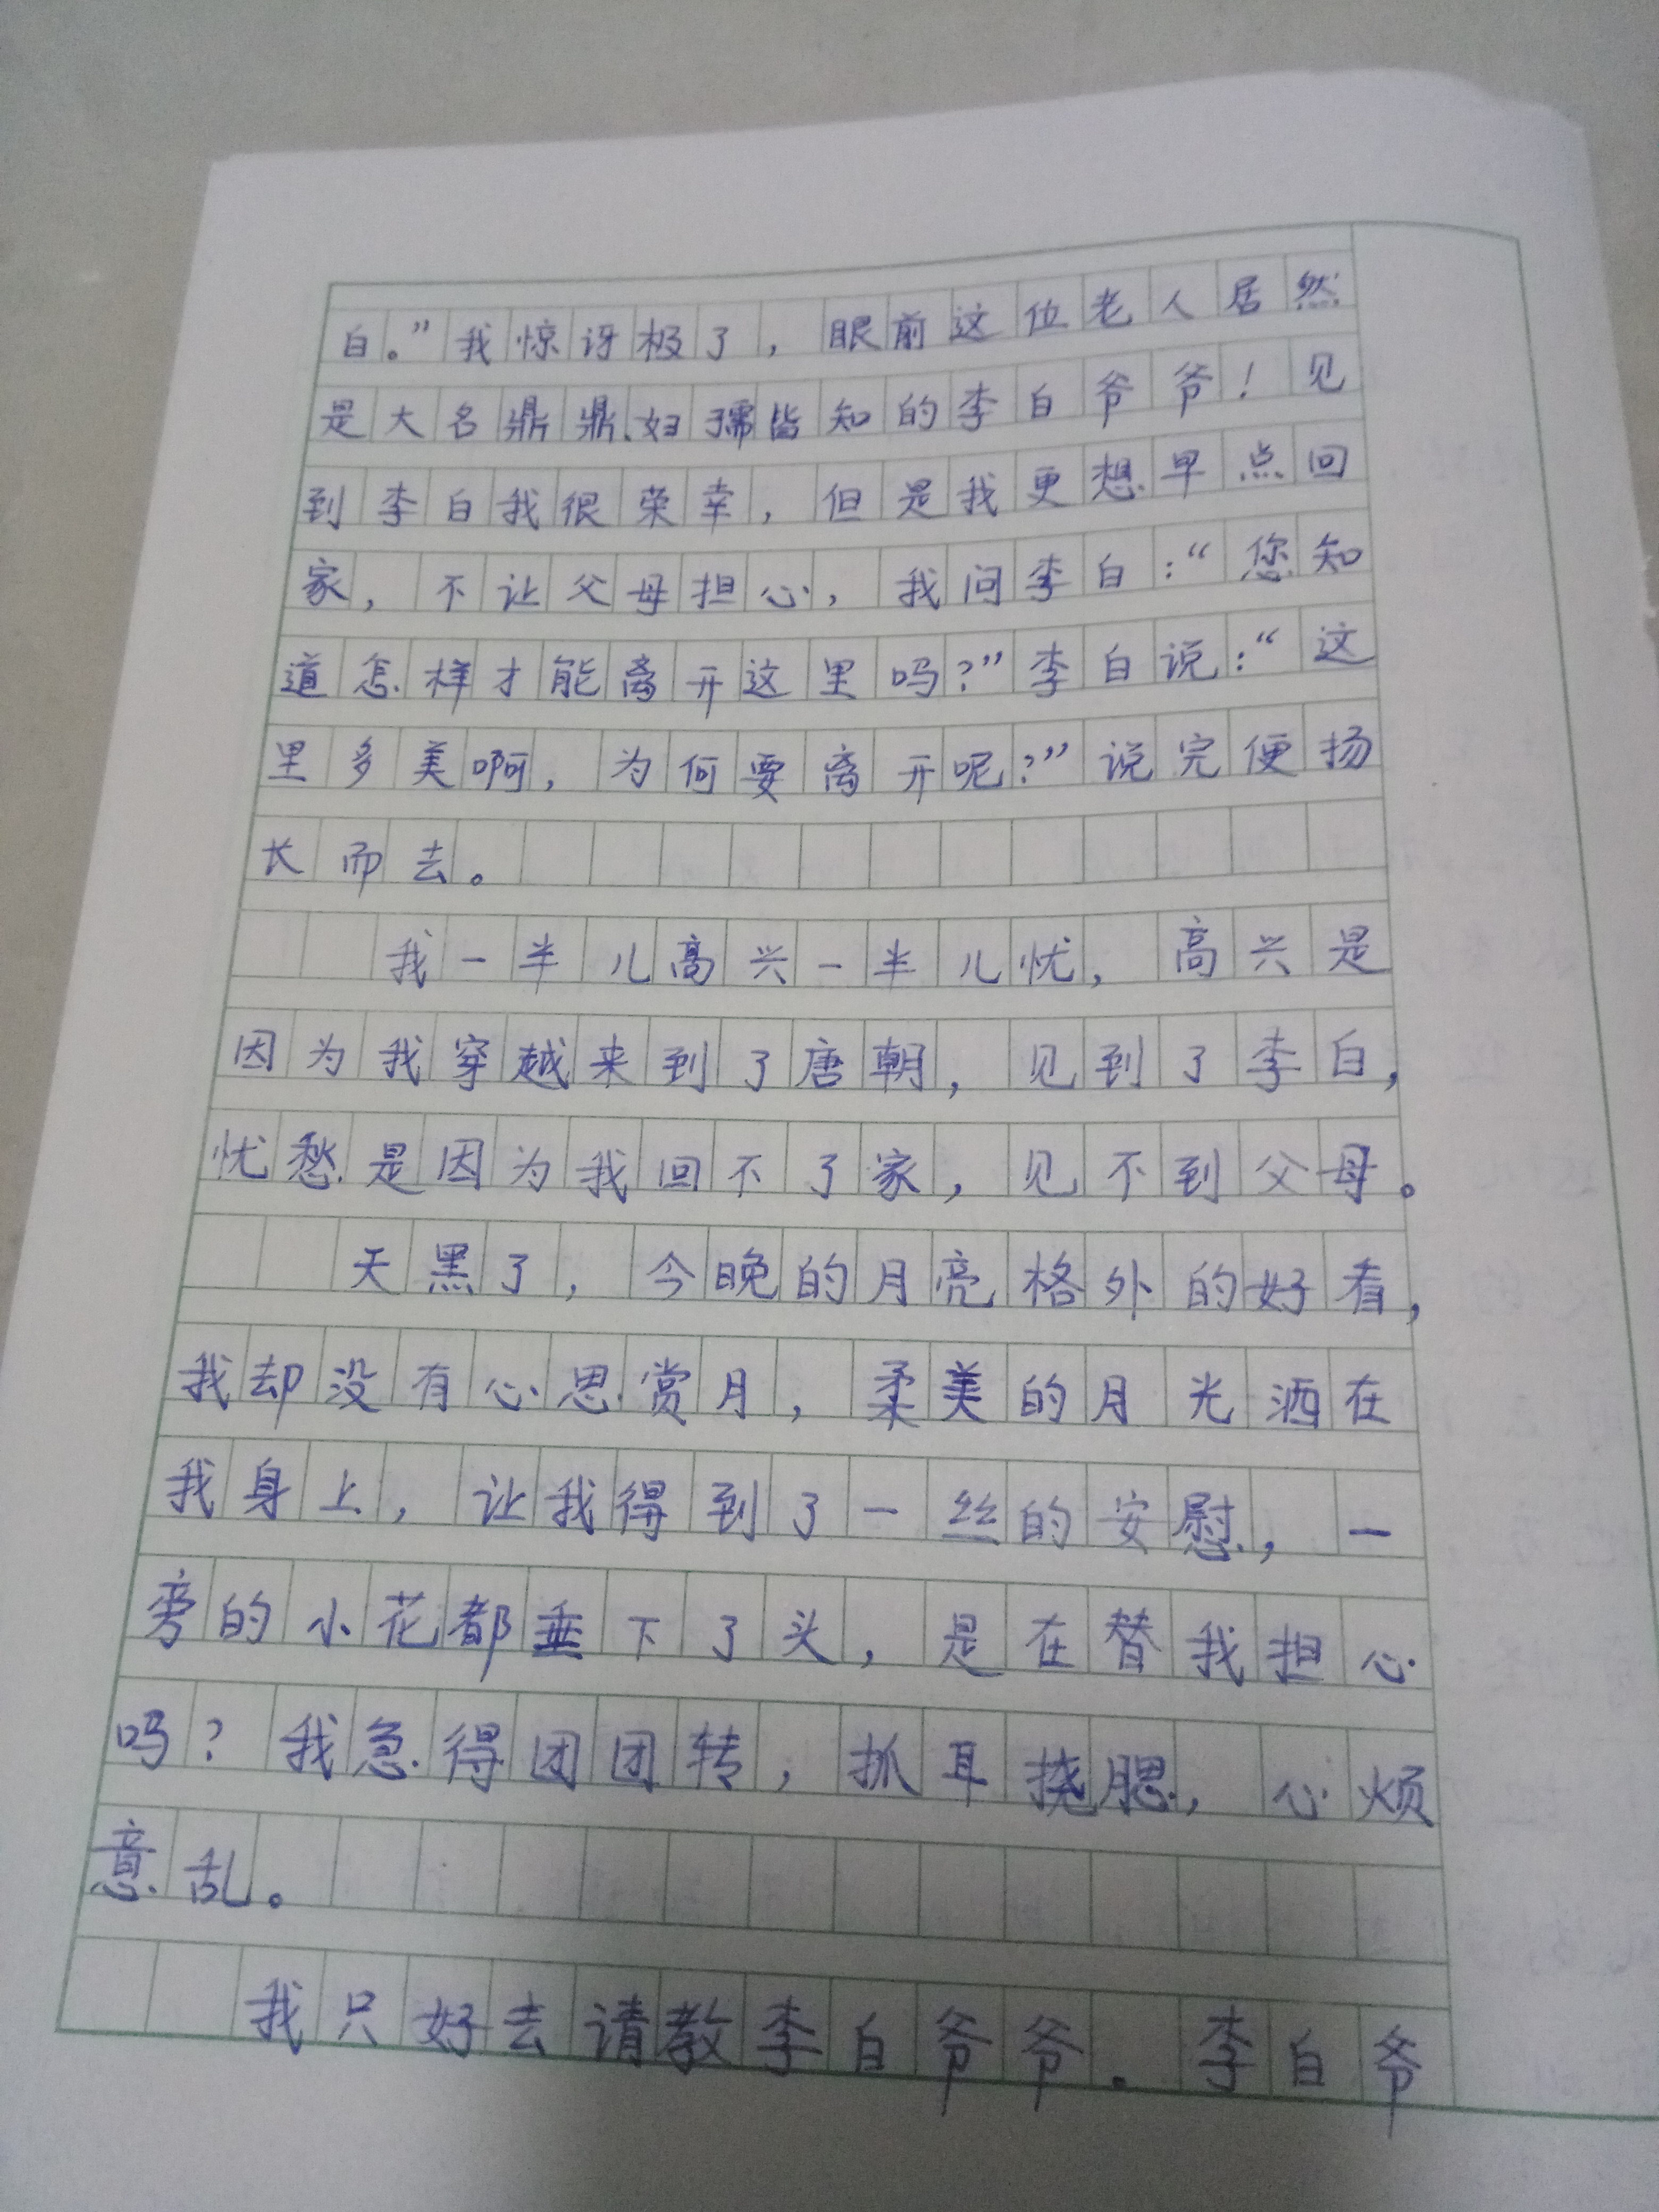 白。”我惊讶极了，眼前这位老人居然
是大名鼎鼎、妇孺皆知的李白爷爷！见
到李白我很荣幸，但是我更想早点回
家，不让父母担心，我问李白：“您知
道怎样才能离开这里吗？”李白说：“这
里多美啊，为何要离开呢？”说完便扬
长而去。
我一半儿高兴一半儿忧，高兴是
因为我穿越来到了唐朝，见到了李白，
忧愁是因为我回不了家，见不到父母。
天黑了，今晚的月亮格外的好看，
我却没有心思赏月，柔美的月光洒在
我身上，让我得到了一丝的安慰，一
旁的小花都垂下了头，是在替我担心
吗？我急得团团转，抓耳挠腮，心烦
意乱。
我只好去请教李白爷爷。李白爷